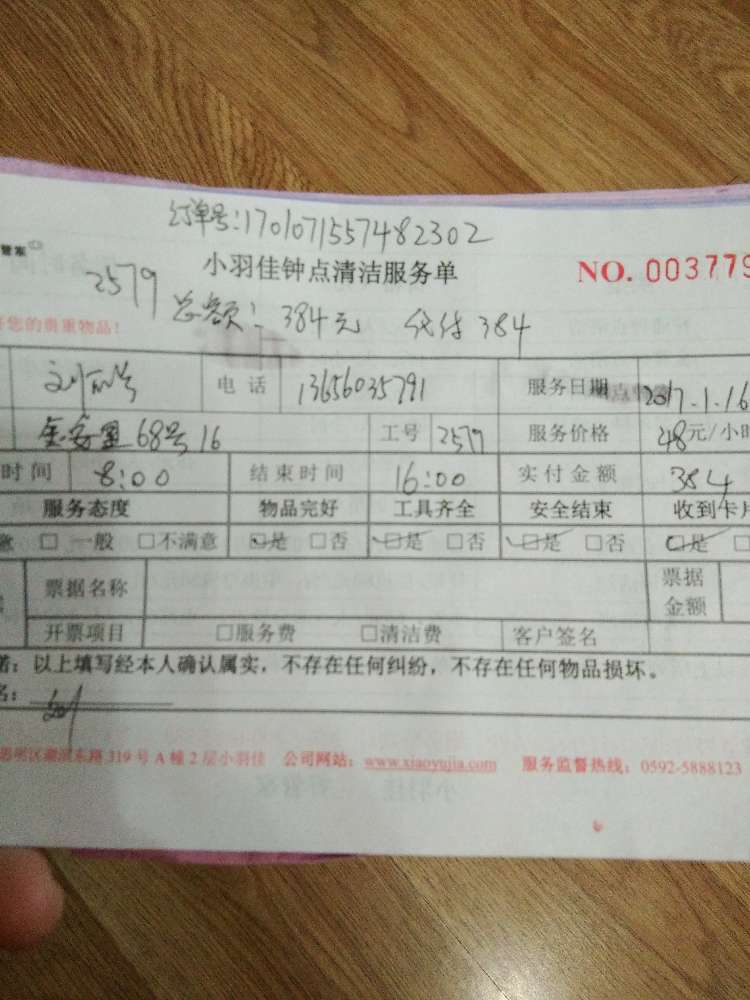 订单号:1701071557482302
管家
小羽佳钟点清洁服务单 NO. 003779
2579
总额: 384元 代付 384
您的贵重物品!
电话 13656035791 服务日期 2017.1.16
68号16 工号 2579 服务价格 48元/小时
时间 8:00 结束时间 16:00 实付金额 384
服务态度 物品完好 工具齐全 安全结束 收到卡片
意 □ 一般 □不满意 □是 □否 □是 □否 □是 □否 □是 □
票据名称 票据金额
开票项目 □服务费 □清洁费 客户签名
诺: 以上填写经本人确认属实，不存在任何纠纷，不存在任何物品损坏。
名:
思明区湖滨东路319号A幢2层小羽佳 公司网站: www.xiaoyujia.com 服务监督热线: 0592-5888123